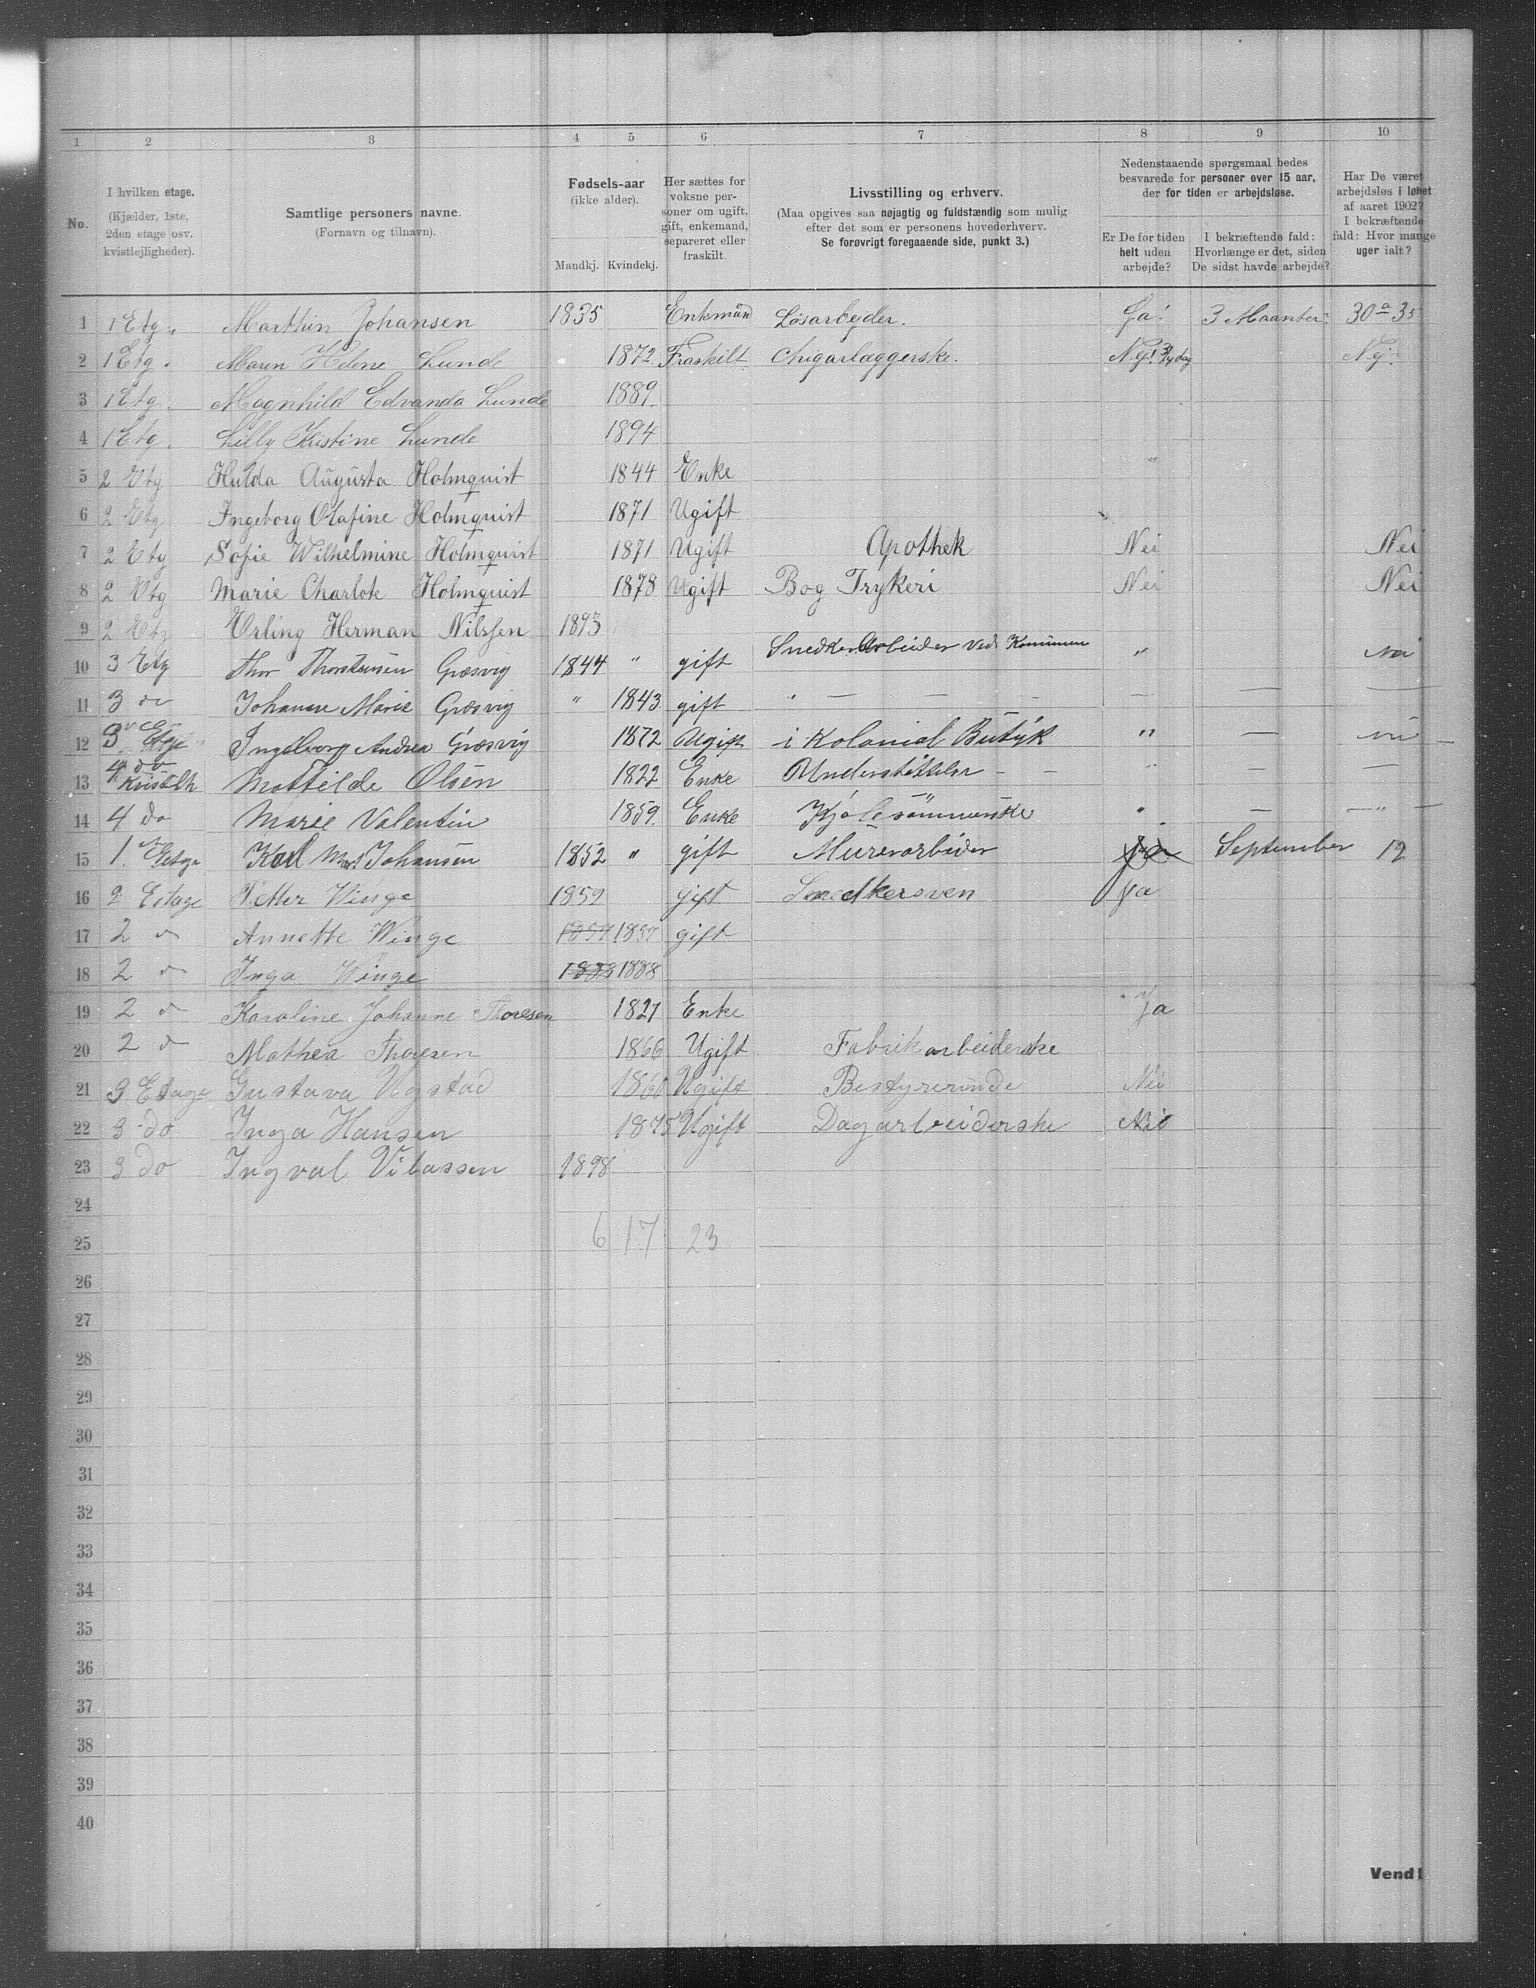 1 2 3 4 5 6 7 8 9 10
No.
I hvilken etage.
(Kjælder, 1ste,
2den etage osv.
kvistlejligheder).
Samtlige personers navne.
(Fornavn og tilnavn).
Fødsels-aar
(ikke alder).
Mandkj. Kvindekj.
Her sættes for
voksne per-
soner om ugift,
gift, enkemand,
separeret eller
fraskilt.
Livsstilling og erhverv.
(Maa opgives saa nøjagtig og fuldstændig som mulig
efter det som er personens hovederhverv.
Se forøvrigt foregaaende side, punkt 3.)
Nedenstaaende spørgsmaal bedes
besvarede for personer over 15 aar,
der for tiden er arbejdsløse.
Er De for tiden
helt uden
arbejde?
I bekræftende fald:
Hvorlænge er det, siden
De sidst havde arbejde?
Har De været
arbejdsløs i løbet
af aaret 1902?
I bekræftende
fald: Hvor mange
uger ialt?
1 1 Etg. Marthin Johansen 1835 Enkmand Løsarbejder. Ja! 3 Maanter 30 a 35
2 1 Etg. Maren Helene Lunde 1872 Fraskilt Chigarlæggerske. Nej! 3/4 dag Nej.
3 1 Etg. Magnhild Edvanda Lunde 1889
4 1 Etg. Lilly Kristine Lunde 1894
5 2 Etg Hulda Augusta Holmquist 1844 Enke "
6 2 Etg Ingeborg Olafine Holmquist 1871 Ugift
7 2 Etg Sofie Wilhelmine Holmquist 1871 Ugift Apothek Nei Nei
8 2 Etg Marie Charlote Holmquist 1878 Ugift Bog Trykeri Nei Nei
9 2 Etg Erling Herman Nilssen 1893
10 3 Etg Thor Thorstensen Græsvig 1844 " gift Snedker Arbeider ved Kommunen " nei
11 3 do Johanne Marie Græsvig " 1843 gift " — — — — — —
12 3 Etge Ingeborg Andrea Græsvig 1872 Ugift i Kolonial Butik " — nei
13 4 do Kvistlh Mathilde Olsen 1822 Enke Understøttelse - - " —
14 4 do Marie Valentin 1859 Enke Kjolesømmerske " — — " —
15 1 Etage Karl Mart Johansen 1852 " gift Murerarbeider Ja September 12
16 2 Etage Petter Winge 1859 gift Snedkersven Ja
17 2 do Annette Winge 1857 1857 gift
18 2 do Inga Winge 1888 1888
19 2 do Karoline Johanne Thoresen 1821 Enke Ja
20 2 do Mathea Thoresen 1866 Ugift Fabrikarbeiderske
21 3 Etage Gustava Ugstad 1860 Ugift Bestyrerinde Nei
22 3 do Inga Hansen 1875 Ugift Dagarbeiderske Nei
23 3 do Ingval 1898
24
25 6 17 23
26
27
28
29
30
31
32
33
34
35
36
37
38
39
40
Vend!